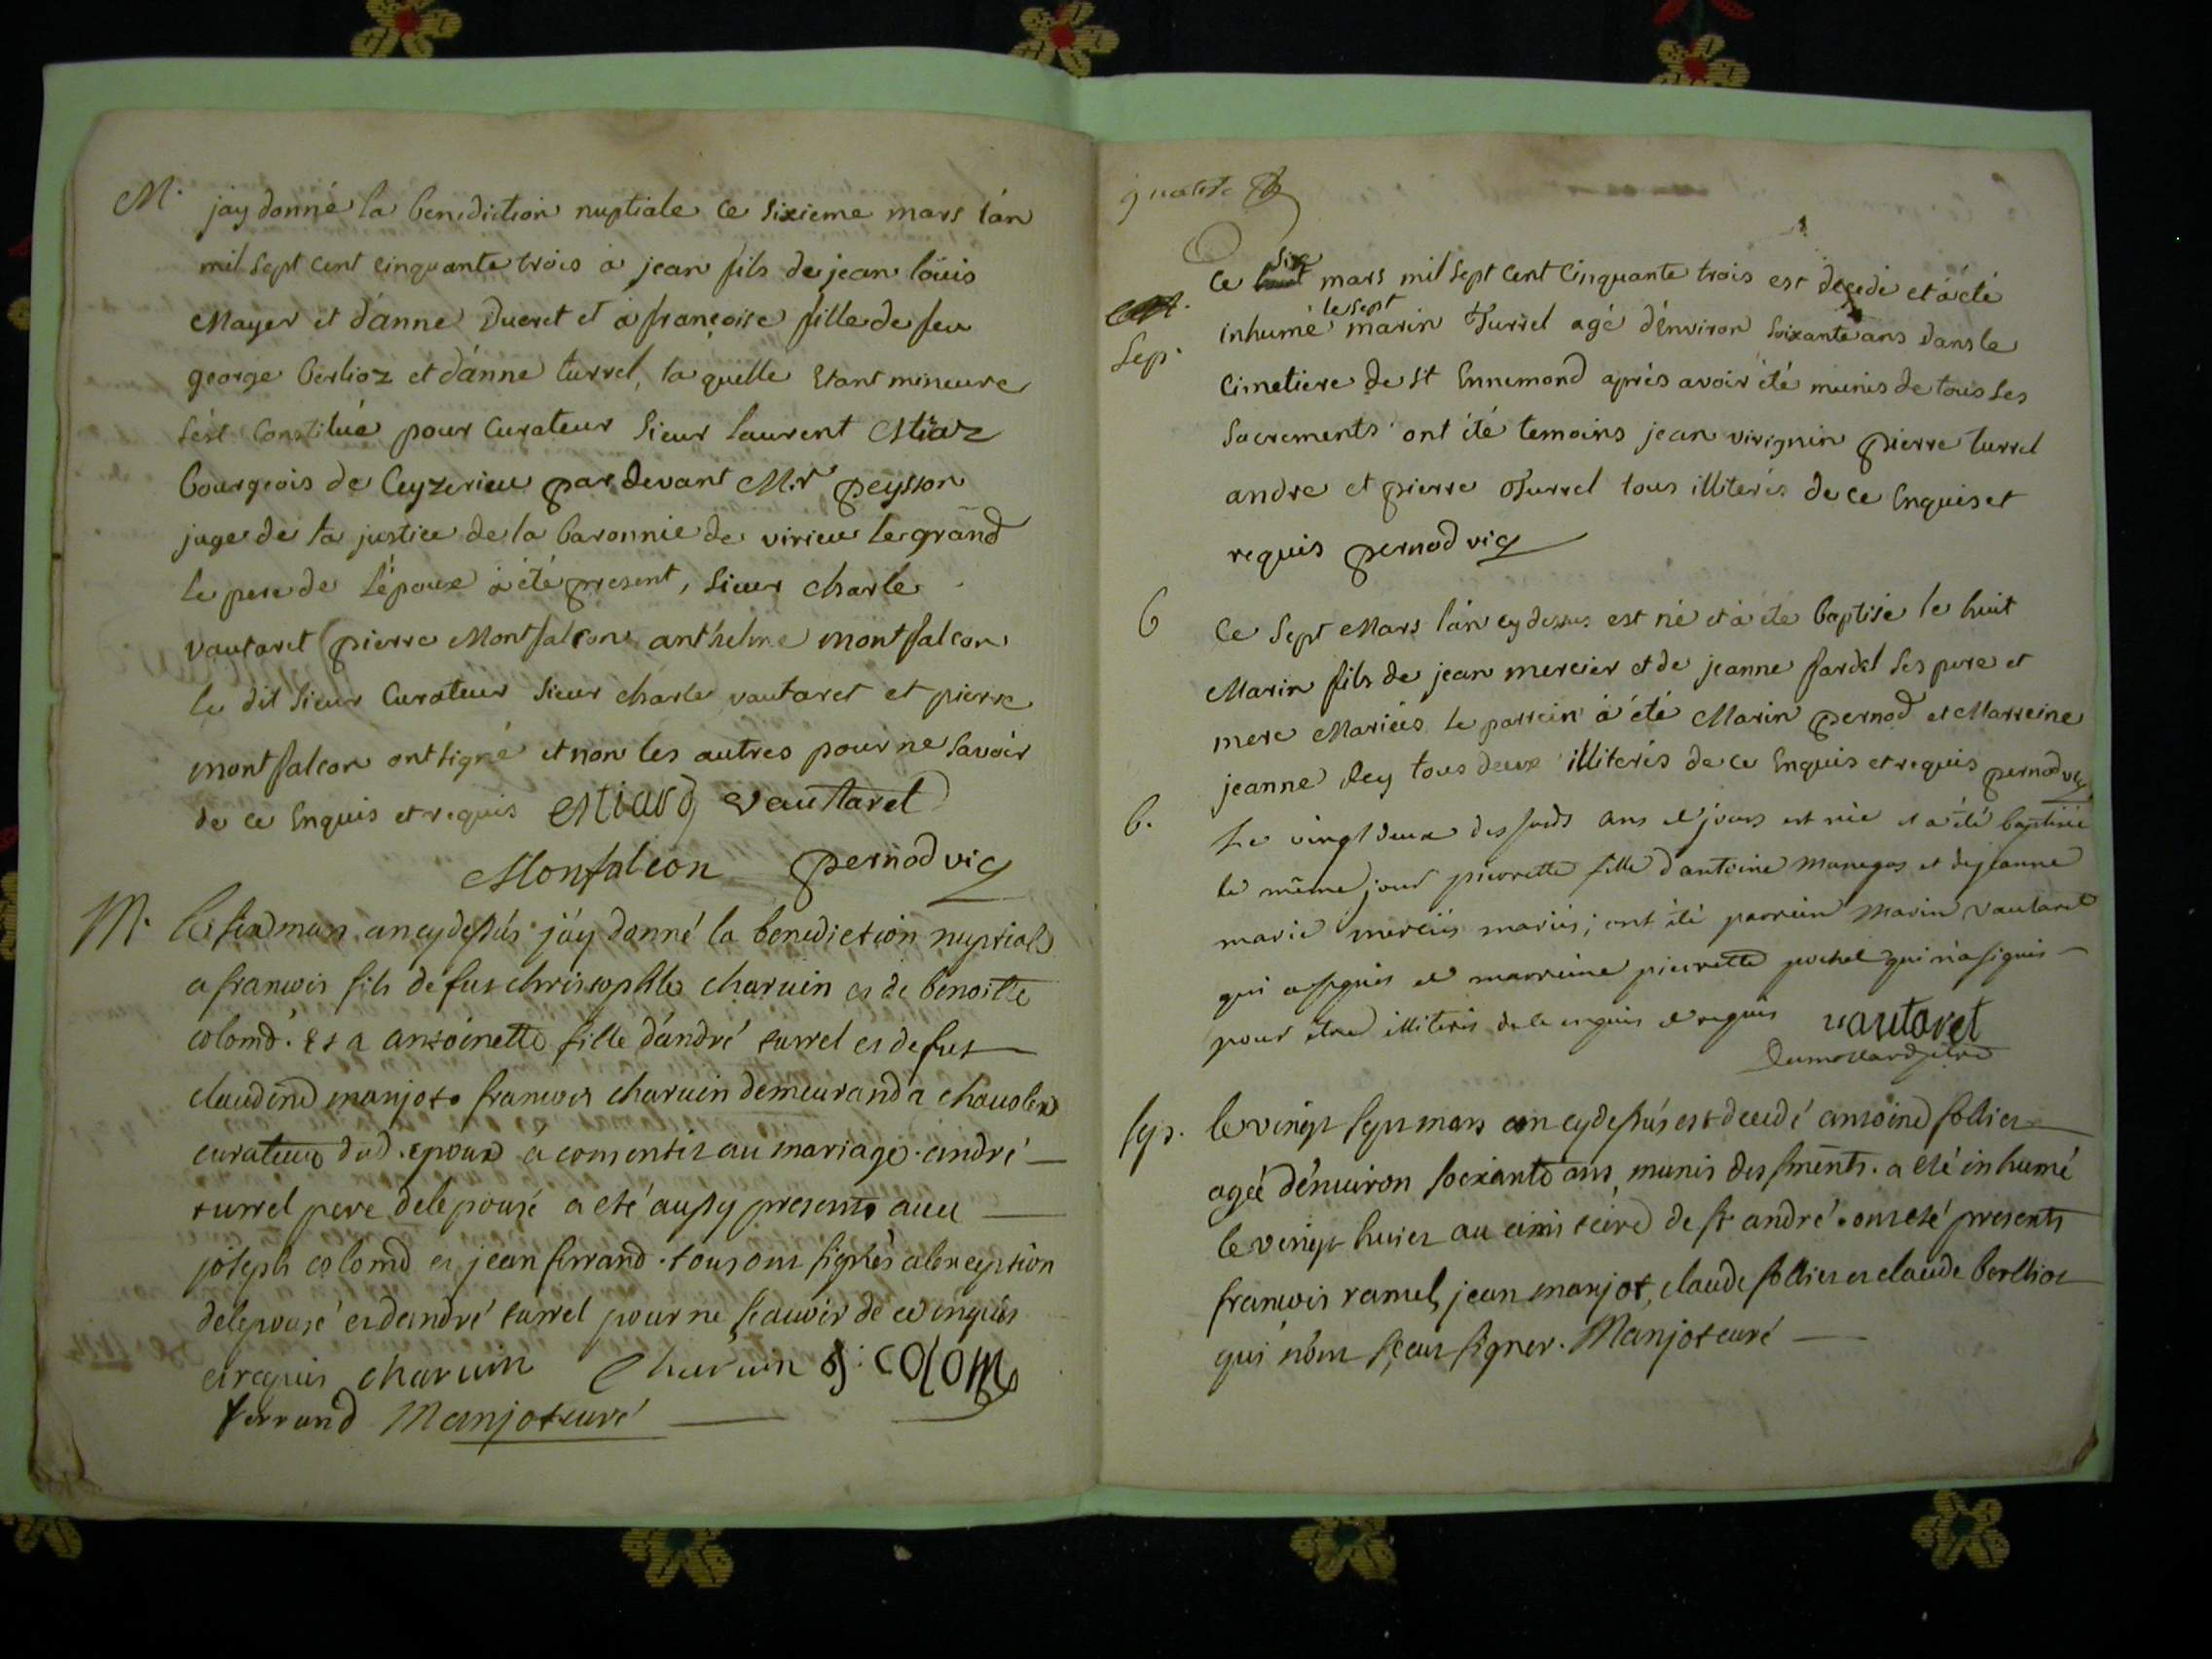 M. jay donné la benediction nuptiale ce sixieme mars l'an
mil sept cent cinquante trois a jean fils de jean loüis
Mayer et d'anne Ducret et a françoise fille de feu
george berlioz et d'anne turrel, la quelle Etant mineure
s'est Constitué pour Curateur Sieur laurent
bourgeois de Ceyzerieu par devant M.r peysson
juge de la justice de la baronnie de virieu le grand
le pere de l'époux a été present, Sieur charle
vautaret pierre Montfalcon anthelme montfalcon
le dit Sieur Curateur Sieur charle vautaret et pierre
montfalcon ont signé et non les autres pour ne Savoir
de ce Enquis et requis vautaret
Monfalcon pernod vic
M. le six mars an cy dessus j'ay donné la benediction nuptiale
a francois fils de fut christophle charuin et de benoitte
colomd. et a antoinette fille d'andré turrel et de fut
claudine manjot. francois charuin demeurand a
curateur dud. epoux a consentir au mariage. andré
turrel pere de l'epouse a eté aussy present avec
joseph colomd et jean ferrand. tous ont signés a l'exception
de l'epouse et d'andré turrel pour ne scauoir de ce enquis
et requis charuin Charuin j: colom
ferrand Manjot curé
quatre
Ce six mars mil Sept Cent Cinquante trois est decedé et a été
Sep. inhumé le sept marin Turrel agé d'Environ Soixante ans dans le
Cimetiere de St Ennemond aprés avoir été munis de tous Ses
Sacrements ont été temoins jean virignin pierre turrel
andre et pierre Turrel tous illiterés de ce Enquis et
requis pernod vic
b Ce Sept Mars l'an cy dessus est né et a été baptisé le huit
Marin fils de jean mercier et de jeanne fardel Ses pere et
mere Mariés le parrein a été Marin pernod et Marreine
jeanne Rey tous deux illiterés de ce Enquis et requis pernod vic
b. Le vingt deux des susds ans et jours est née et a été baptisée
le même jour pierrette fille d'antoine et de jeanne
marie mariés; ont été parrein Marin vautaret
qui a signé et marreine pierrette qui n'a signé
pour être illiteris de le enquis et requis vautaret
Sep. le vingt sept mars an cy dessus est decedé antoine sollier
agé d'enuiron soixante ans, munis des sments. a eté inhumé
le vingt huict au cimetiere de st andré. ont eté presents
francois ramel, jean manjot, claude sollier et claude berllioz
qui n'ont sceu signer. Manjot curé